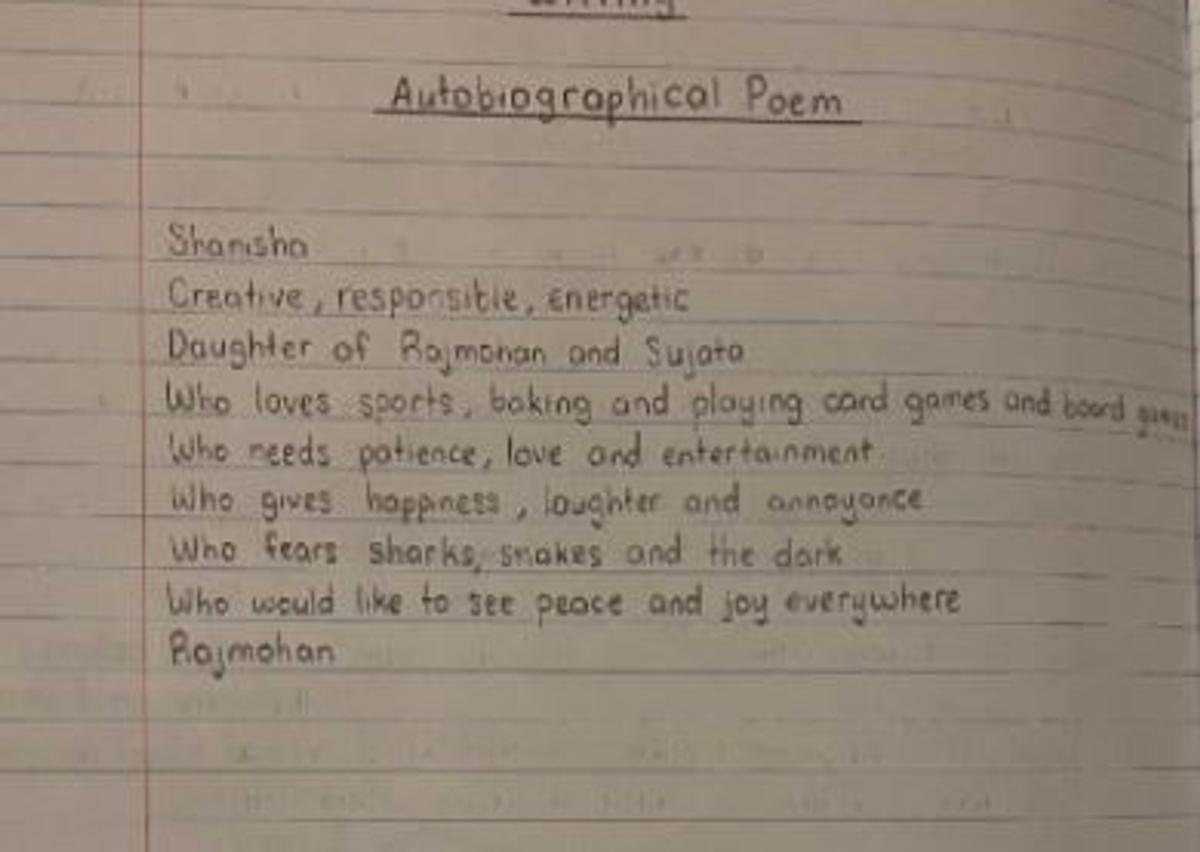 Writing
Autobiographical Poem
Shanisha
Creative, responsible, energetic
Daughter of Rajmohan and Sujata
Who loves sports, baking and playing card games and board games
Who needs patience, love and entertainment.
Who gives happiness, laughter and annoyance
Who fears sharks, snakes and the dark
Who would like to see peace and joy everywhere
Rajmohan